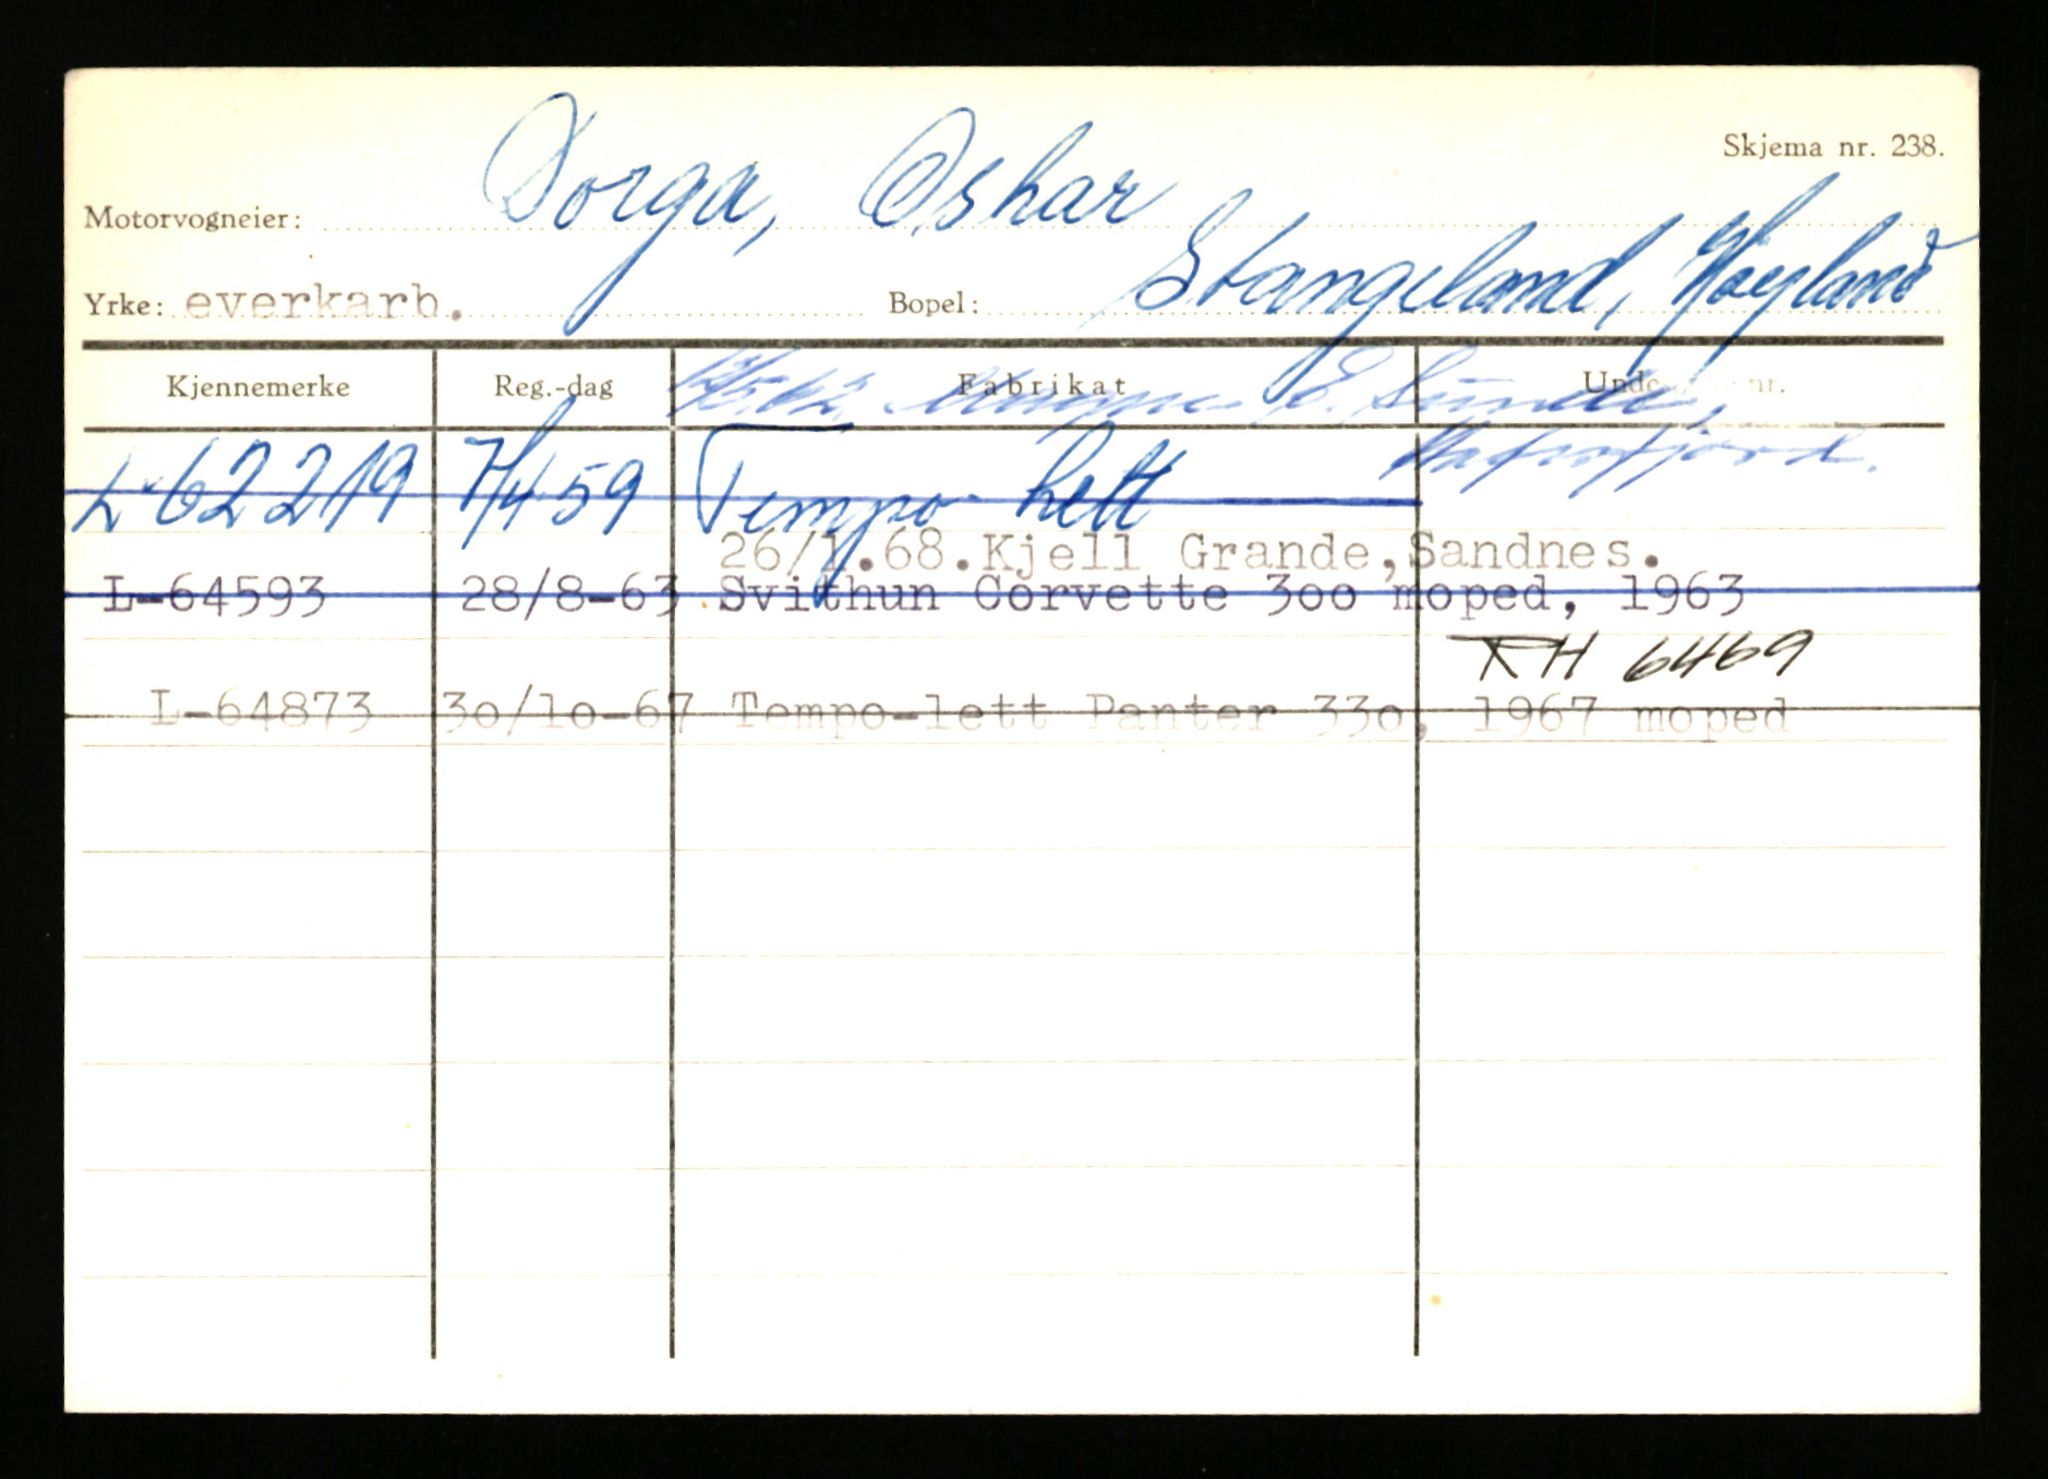 Skjema nr. 238.
Motorvogneier: Dorga, Oskar
Yrke: everkarb. Bopel: Stangeland, Høyland
Kjennemerke Reg.-dag Fabrikat nr.
E. Sunde,
Hafrsfjord.
L-62219 7/4 59 Tempo lett
26/1.68.Kjell Grande,Sandnes.
L-64593 28/8-63 Svithun Corvette 300 moped, 1963
RH 6469
L-64873 30/10-67 Tempo-lett Panter 330, 1967 moped